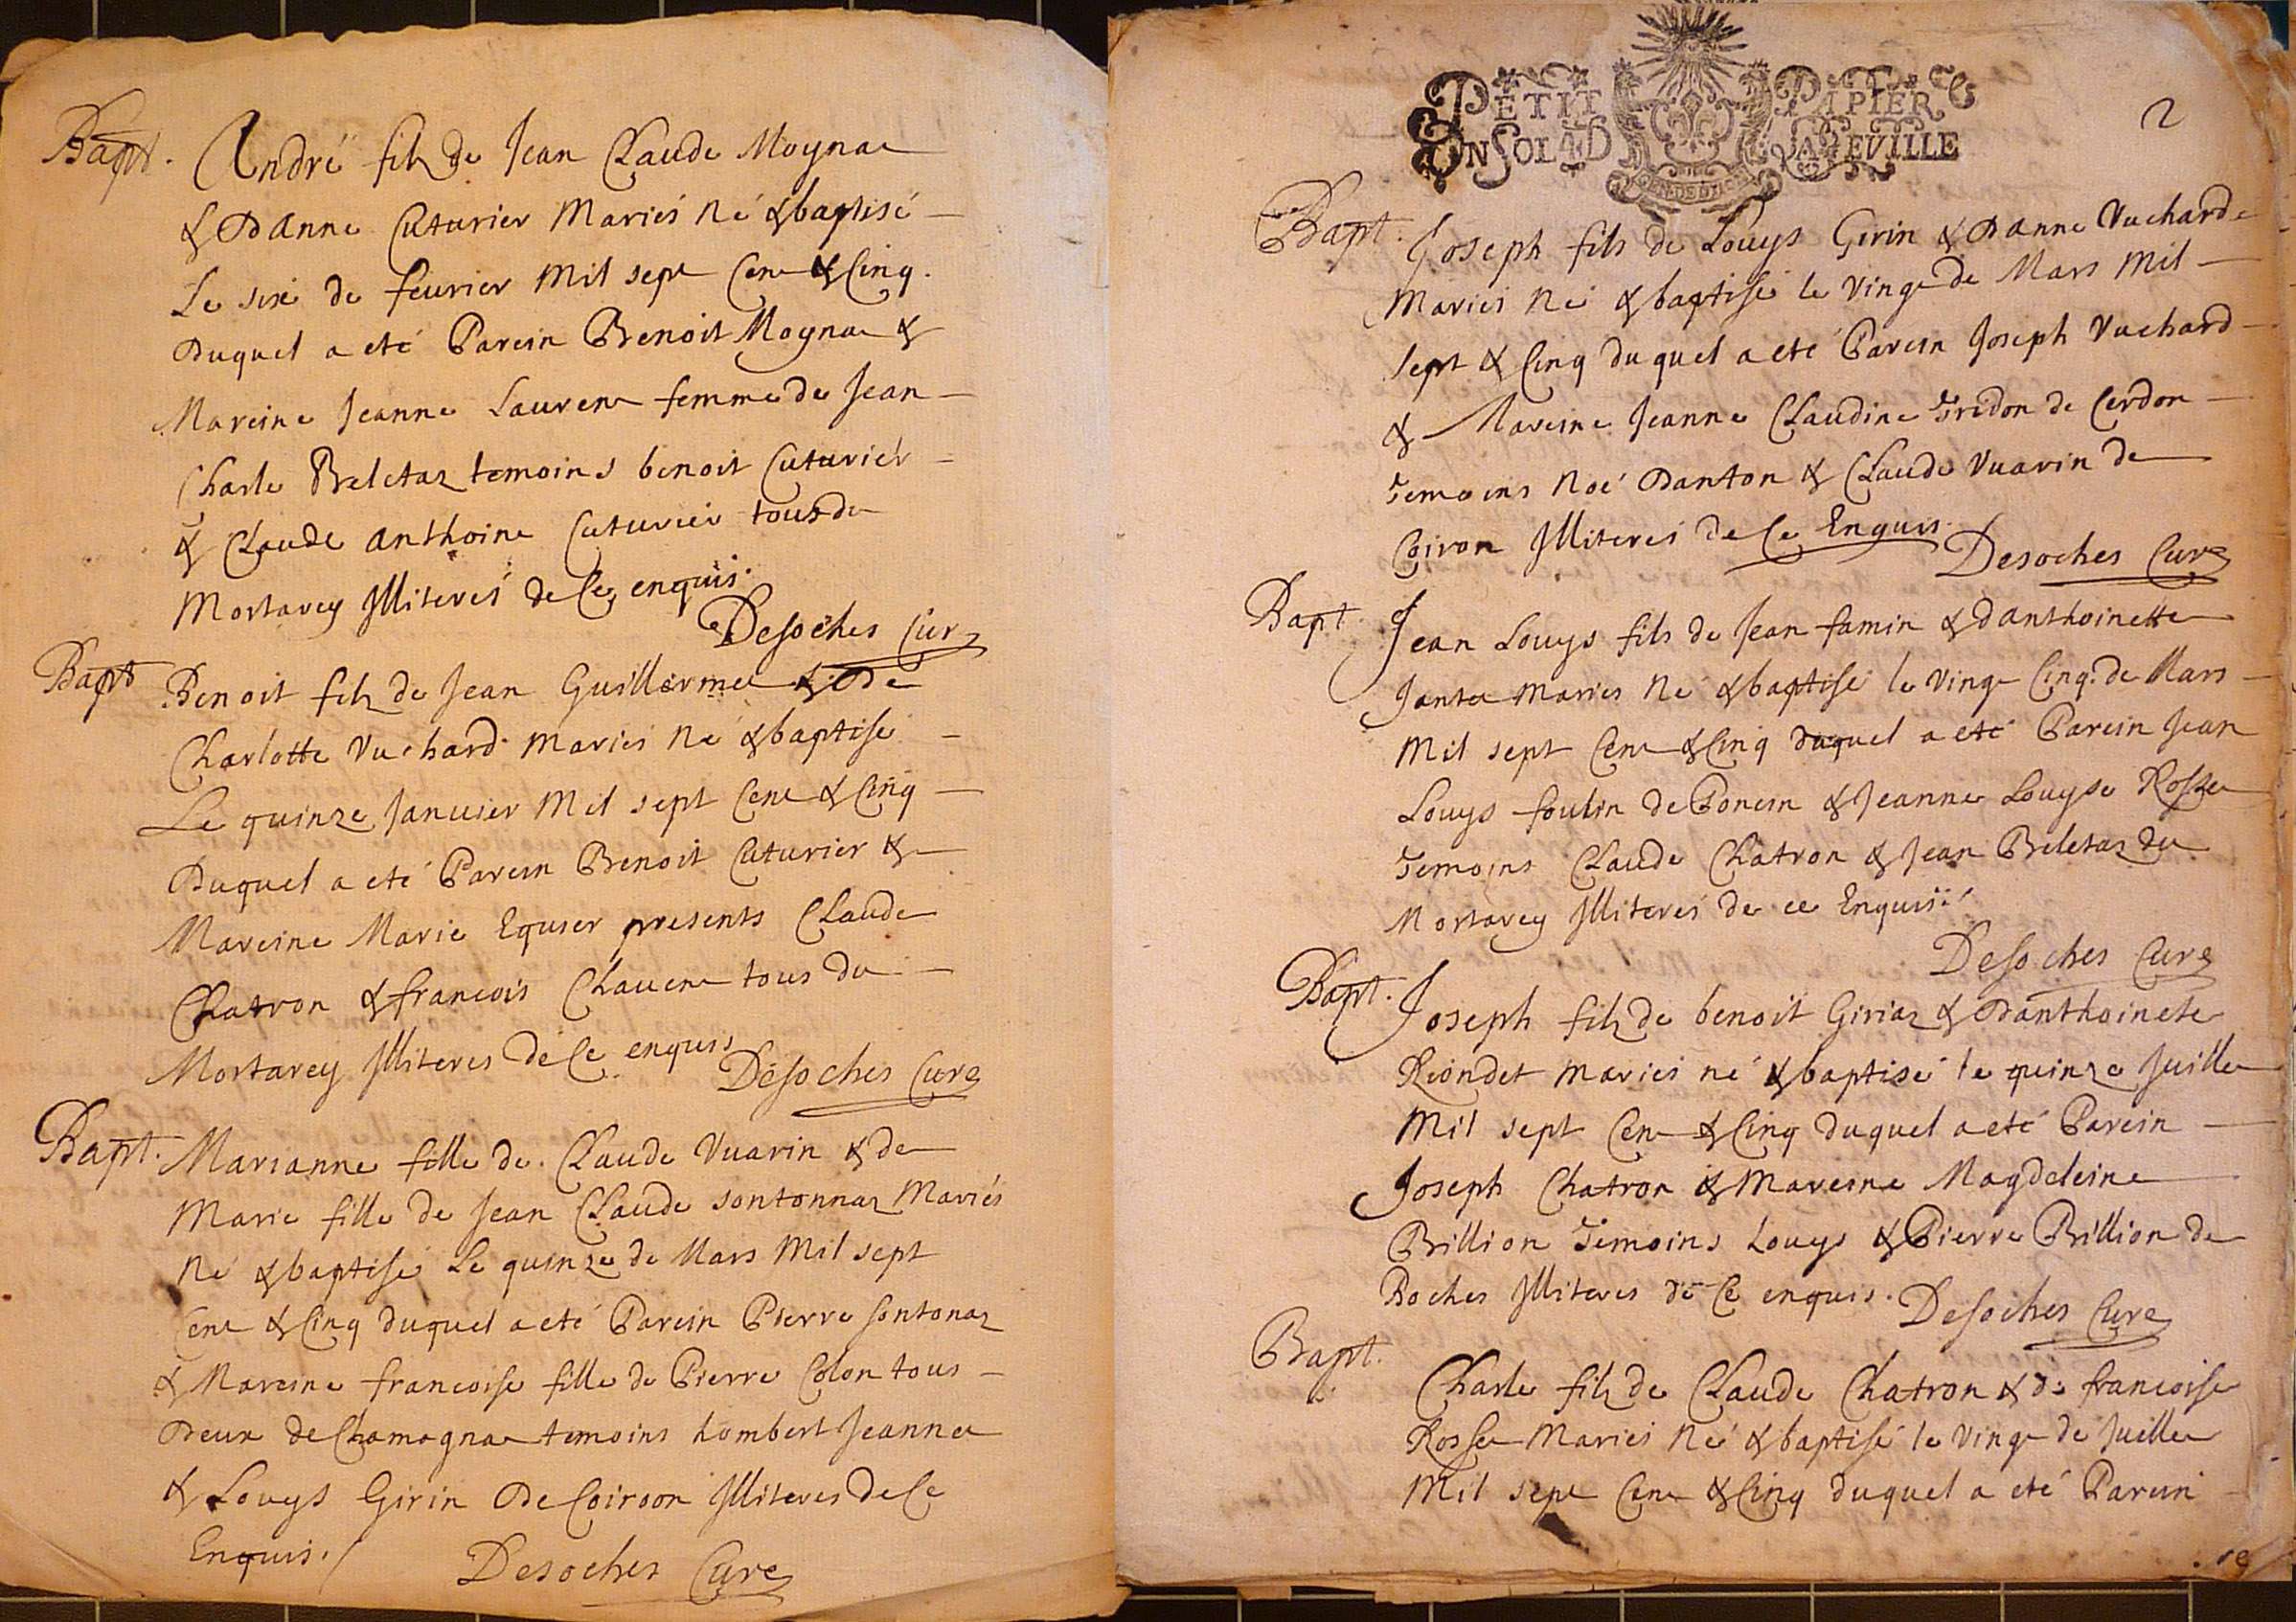 Bapt. André fils de Jean Claude Moynat
& Danne Cuturier Mariés Né & baptisé
Le sixe de feurier Mil sept Cent & Cinq.
Duquel a eté Parein Benoit Moynat &
Mareine Jeanne Laurent femme de Jean
Charle Beletaz temoins benoit Cuturiér
& Claude anthoine Cuturier tous du
Mortarey Illiteres de Ce, enquis.
Desoches Cure
Bapt Benoit fils de Jean Guillermet & De
Charlotte Vuchard Maries Né & baptisé
Le quinze Januier Mil sept Cent & Cinq
Duquel a eté Parein Benoit Cuturier &
Mareine Marie Equier presents Claude
Chatron & francois Chauent tous du
Mortarey Illiteres de Ce enquis
Desoches Cure
Bapt. Marianne fille de Claude Vuarin & de
Marie fille de Jean Claude sontonnaz Mariés
Né & baptisé Le quinze de Mars Mil sept
Cent & Cinq duquel a eté Parein Pierre sontonaz
& Mareine francoise fille de Pierre Colon tous
Deux de Chamagnat temoins humbert Jeannet
& Louys Girin De Coiron Illiteres de Ce
Enquis. / Desoches Cure
PETIT PAPIER
UN SOL 4 D LA FEUILLE
2
Bapt. Joseph fils de Louys Girin & Danne Vuchard
Mariés Né & baptisé le Vingt de Mars Mil
sept & Cinq duquel a eté Parein Joseph Vuchard
& Mareine Jeanne Claudine Gredon de Cerdon
Temoins Noé Danton & Claude Vuarin de
Coiron Illiterés de Ce Enquis.
Desoches Cure
Bapt. Jean Louys fils de Jean famin & danthoinette
Jantet Maries Né & baptisé le Vingt Cinq de Mars
Mil sept Cent & Cinq duquel a eté Parein Jean
Louys foulin de Poncin & Jeanne Louyse Rosset
Temoins Claude Chatron & Jean Beletaz du
Mortarey Illiterés de ce Enquis
Desoches Cure
Bapt. Joseph fils de benoit Giriaz & Danthoinete
Riondet Mariés né & baptisé le quinze Juillet
Mil sept Cent & Cinq duquel a eté Parein
Joseph Chatron & Mareine Magdeleine
Brillion Temoins Louys & Pierre Brillion de
Roches Illiteres de Ce enquis. Desoches Cure
Bapt. Charle fils de Claude Chatron & de francoise
Rosset Mariés Né & baptisé le Vingt de Juillet
Mil sept Cent & Cinq duquel a eté Parein